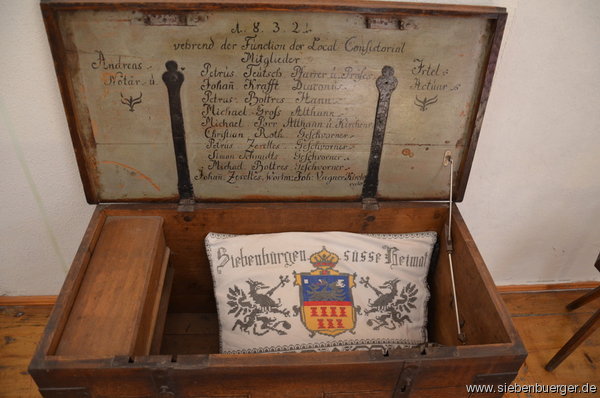 1832
vehrend der Function der Local Consistorial
Mitglieder
Andreas Frtel
Notär u Actuar
Petrus Teutsch Pfarrer u Profes
Johañ Krafft Diaconus
Petrus Boltres Hann
Michael Groß Althann
Michael Althann u Kirchenv
Christian Roth Geschvorner
Petrus Zerelles Geschvorner
Simon Schmidts Geschvorner
Michael Boltres Geschvorner
Johañ Zerelles Wortm Joh Vagner
Siebenbürgen süsse Heimat
www.siebenbuerger.de